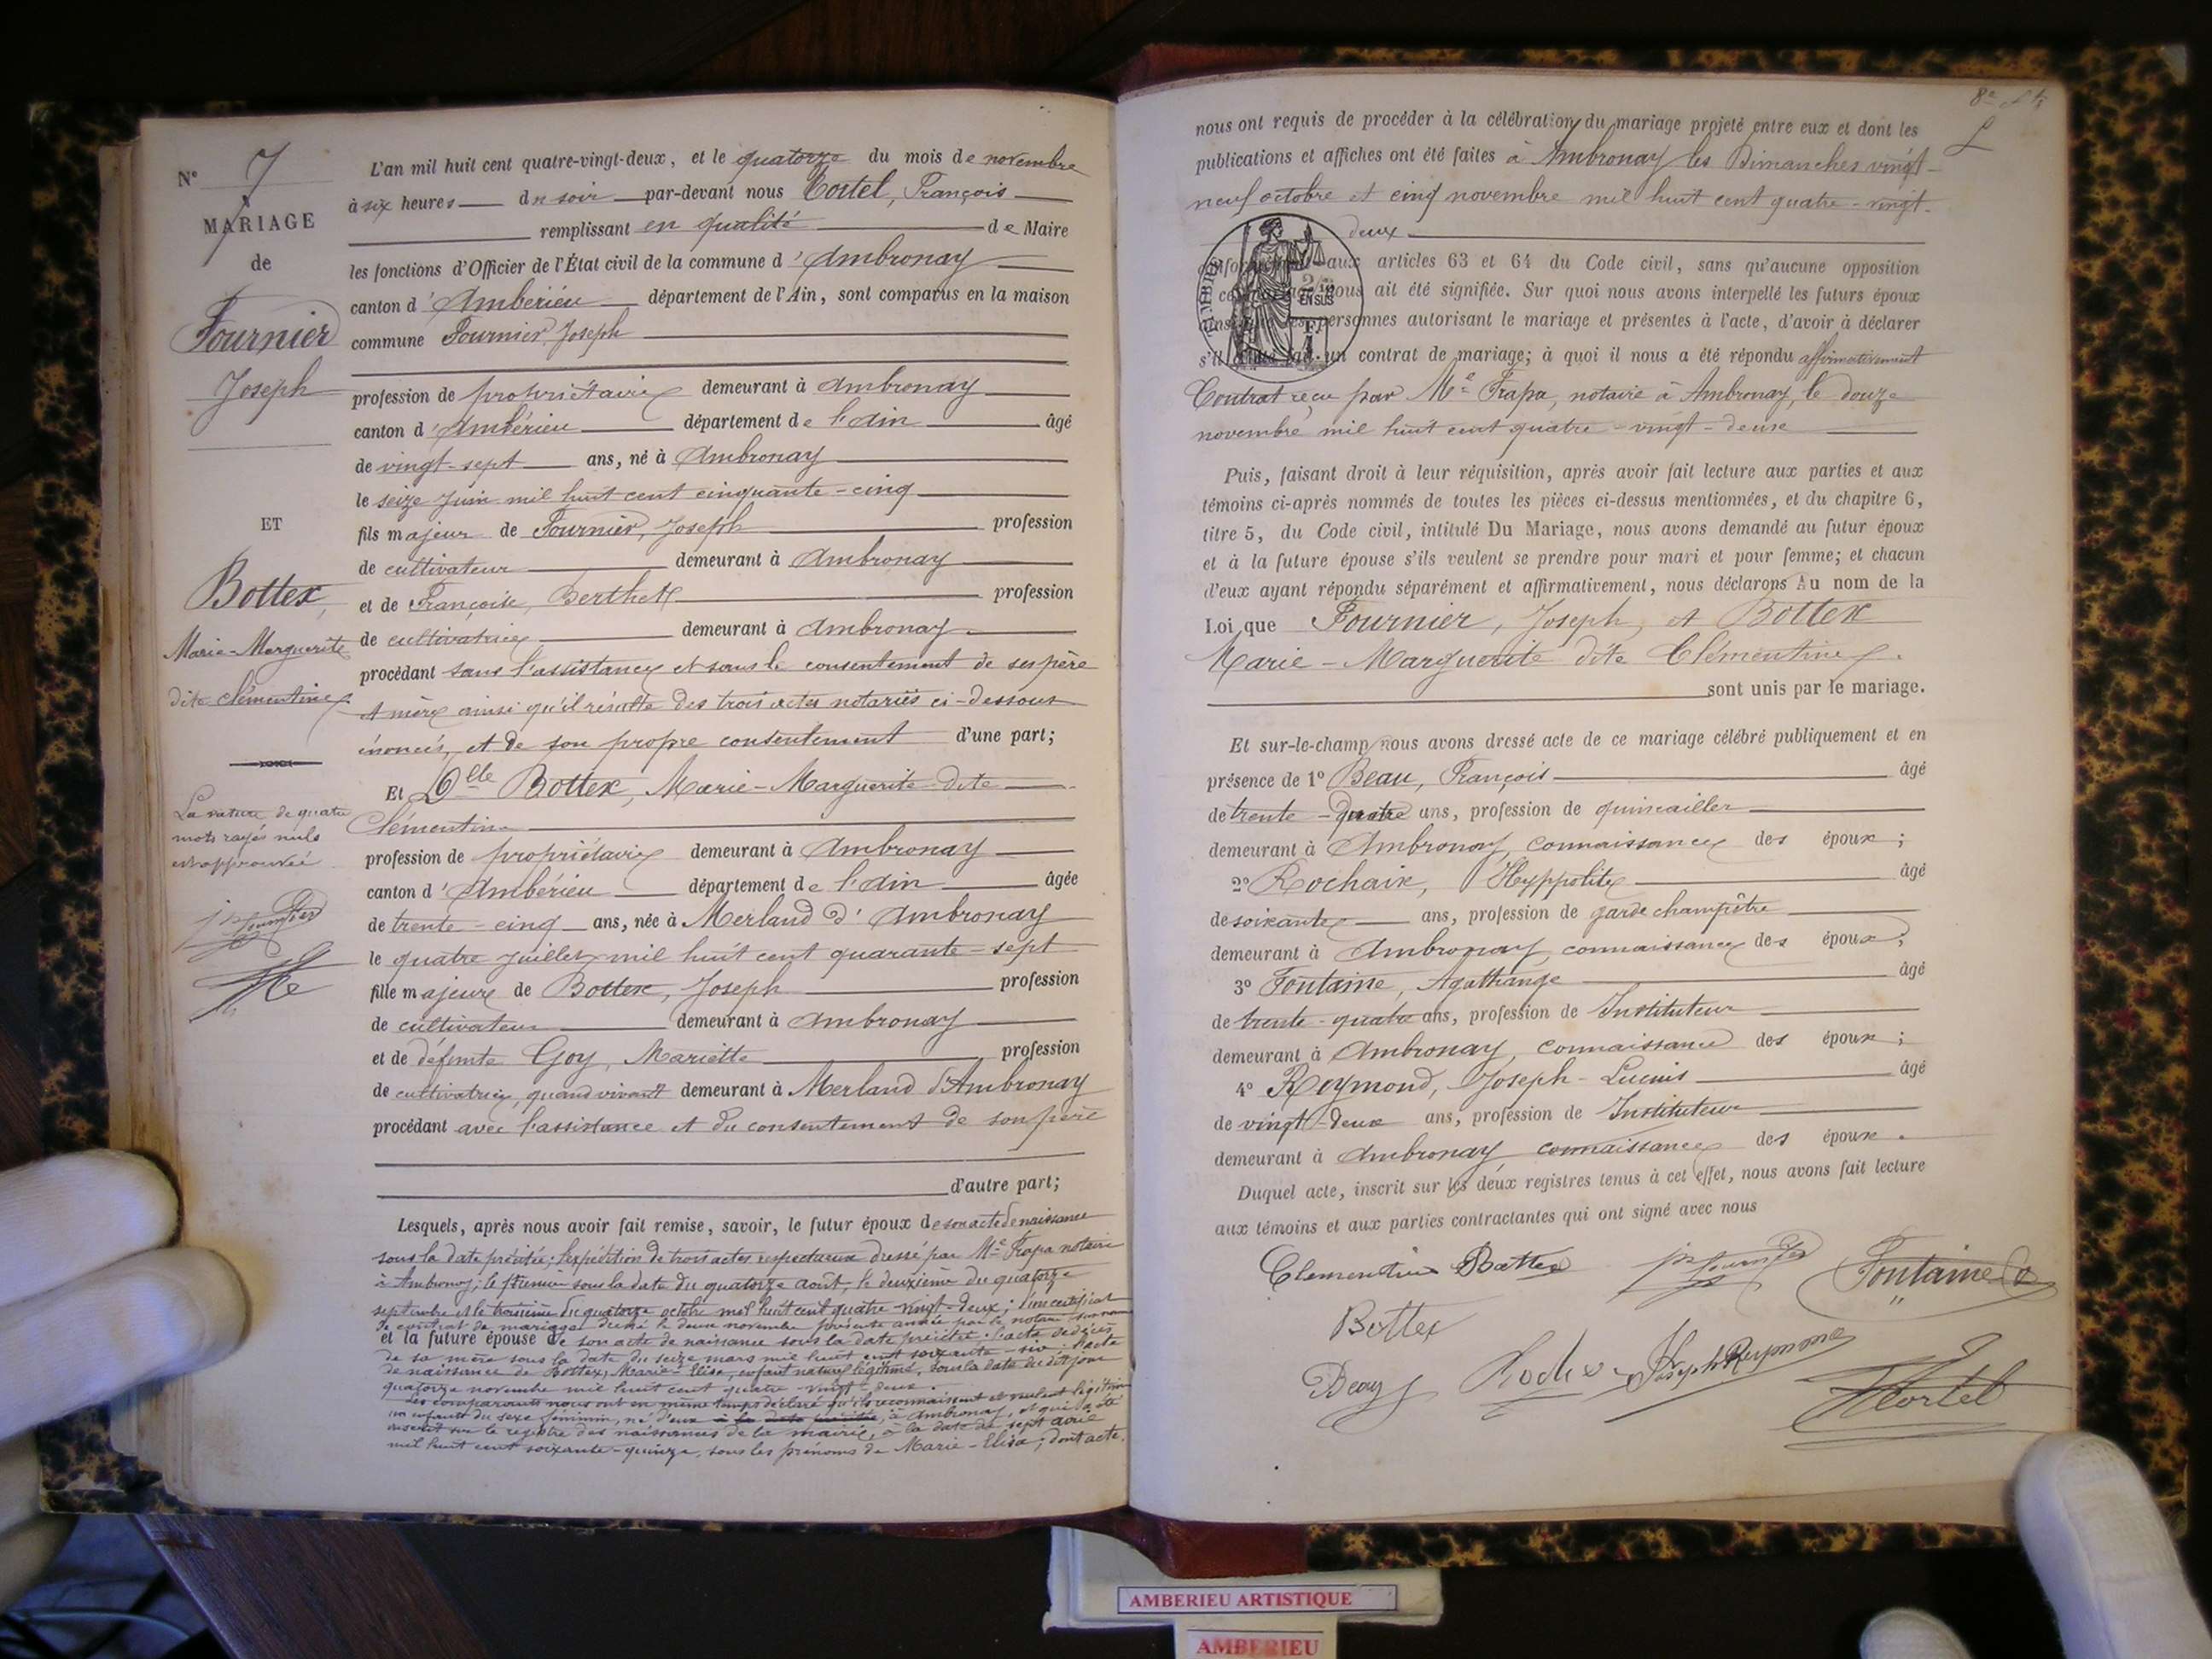 N° 7
MARIAGE
de
Fournier
Joseph
ET
Bottex,
Marie-Marguerite
dite Clémentine
La rature de quatre
mots rayés nuls
est approuvée
L'an mil huit cent quatre-vingt-deux, et le quatorze du mois de novembre
à six heures du soir par-devant nous Cortel, François
remplissant en qualité de Maire
les fonctions d'Officier de l'État civil de la commune d'Ambronay
canton d'Ambérieu département de l'Ain, sont comparus en la maison
commune Fournier, Joseph
profession de propriétaire demeurant à Ambronay
canton d'Ambérieu département de l'Ain âgé
de vingt-sept ans, né à Ambronay
le seize Juin mil huit cent cinquante-cinq
fils majeur de Fournier, Joseph profession
de cultivateur demeurant à Ambronay
et de Françoise, Berthet profession
de cultivatrice demeurant à Ambronay
procédant sans l'assistance et sans le consentement de ses père
et mère ainsi qu'il résulte des trois actes notariés ci-dessous
énoncés, et de son propre consentement d'une part;
Et Dlle Bottex, Marie-Marguerite dite
Clémentine
profession de propriétaire demeurant à Ambronay
canton d'Ambérieu département de l'Ain âgée
de trente-cinq ans, née à Merland d'Ambronay
le quatre Juillet mil huit cent quarante-sept
fille majeure de Bottex, Joseph profession
de cultivateur demeurant à Ambronay
et de défunte Goy, Mariette profession
de cultivatrice, quand vivait demeurant à Merland d'Ambronay
procédant avec l'assistance et du consentement de son père
d'autre part;
Lesquels, après nous avoir fait remise, savoir, le futur époux de son acte de naissance
sous la date précitée; l'expédition de trois actes respectueux dressé par Me Frapa notaire
à Ambronay; le premier sous la date du quatorze août, le deuxième du quatorze
septembre et le troisième du quatorze octobre mil huit cent quatre-vingt-deux; d'un certificat
de contrat de mariage dressé le douze novembre présente année par le notaire
et la future épouse de son acte de naissance sous la date précitée; l'acte de décès
de sa mère sous la date du seize mars mil huit cent soixante-six; l'acte
de naissance de Bottex, Marie-Elisa, enfant naturel légitimé, sous la date du dit jour
quatorze novembre mil huit cent quatre-vingt-deux.
Les comparants nous ont en même temps déclaré qu'ils reconnaissent et veulent légitimer
un enfant du sexe féminin, né d'eux à la date précitée, à Ambronay, et qui a été
inscrit sur le registre des naissances de la mairie, à la date du sept avril
mil huit cent soixante-quinze, sous les prénoms de Marie-Elisa; dont acte.
nous ont requis de procéder à la célébration du mariage projeté entre eux et dont les
publications et affiches ont été faites à Ambronay les Dimanches vingt-
neuf octobre et cinq novembre mil huit cent quatre-vingt-
deux
aux articles 63 et 64 du Code civil, sans qu'aucune opposition
nous ait été signifiée. Sur quoi nous avons interpellé les futurs époux
personnes autorisant le mariage et présentes à l'acte, d'avoir à déclarer
s'il un contrat de mariage; à quoi il nous a été répondu affirmativement
Contrat reçu par Me Frapa, notaire à Ambronay, le douze
novembre mil huit cent quatre-vingt-deux
Puis, faisant droit à leur réquisition, après avoir fait lecture aux parties et aux
témoins ci-après nommés de toutes les pièces ci-dessus mentionnées, et du chapitre 6,
titre 5, du Code civil, intitulé Du Mariage, nous avons demandé au futur époux
et à la future épouse s'ils veulent se prendre pour mari et pour femme; et chacun
d'eux ayant répondu séparément et affirmativement, nous déclarons Au nom de la
Loi que Fournier, Joseph, et Bottex
Marie-Marguerite dite Clémentine.
sont unis par le mariage.
Et sur-le-champ nous avons dressé acte de ce mariage célébré publiquement et en
présence de 1° Beau, François âgé
de trente-quatre ans, profession de quincailler
demeurant à Ambronay, connaissance des époux;
2° Rochaix, Hyppolite âgé
de soixante ans, profession de garde champêtre
demeurant à Ambronay, connaissance des époux;
3° Fontaine, Agathange âgé
de trente-quatre ans, profession de Instituteur
demeurant à Ambronay, connaissance des époux;
4° Reymond, Joseph-Lucius âgé
de vingt-deux ans, profession de Instituteur
demeurant à Ambronay connaissance des époux.
Duquel acte, inscrit sur les deux registres tenus à cet effet, nous avons fait lecture
aux témoins et aux parties contractantes qui ont signé avec nous
Clementine Bottex Fournier Fontaine
Bottex
Joseph Reymond
Cortel
AMBERIEU ARTISTIQUE
AMBERIEU